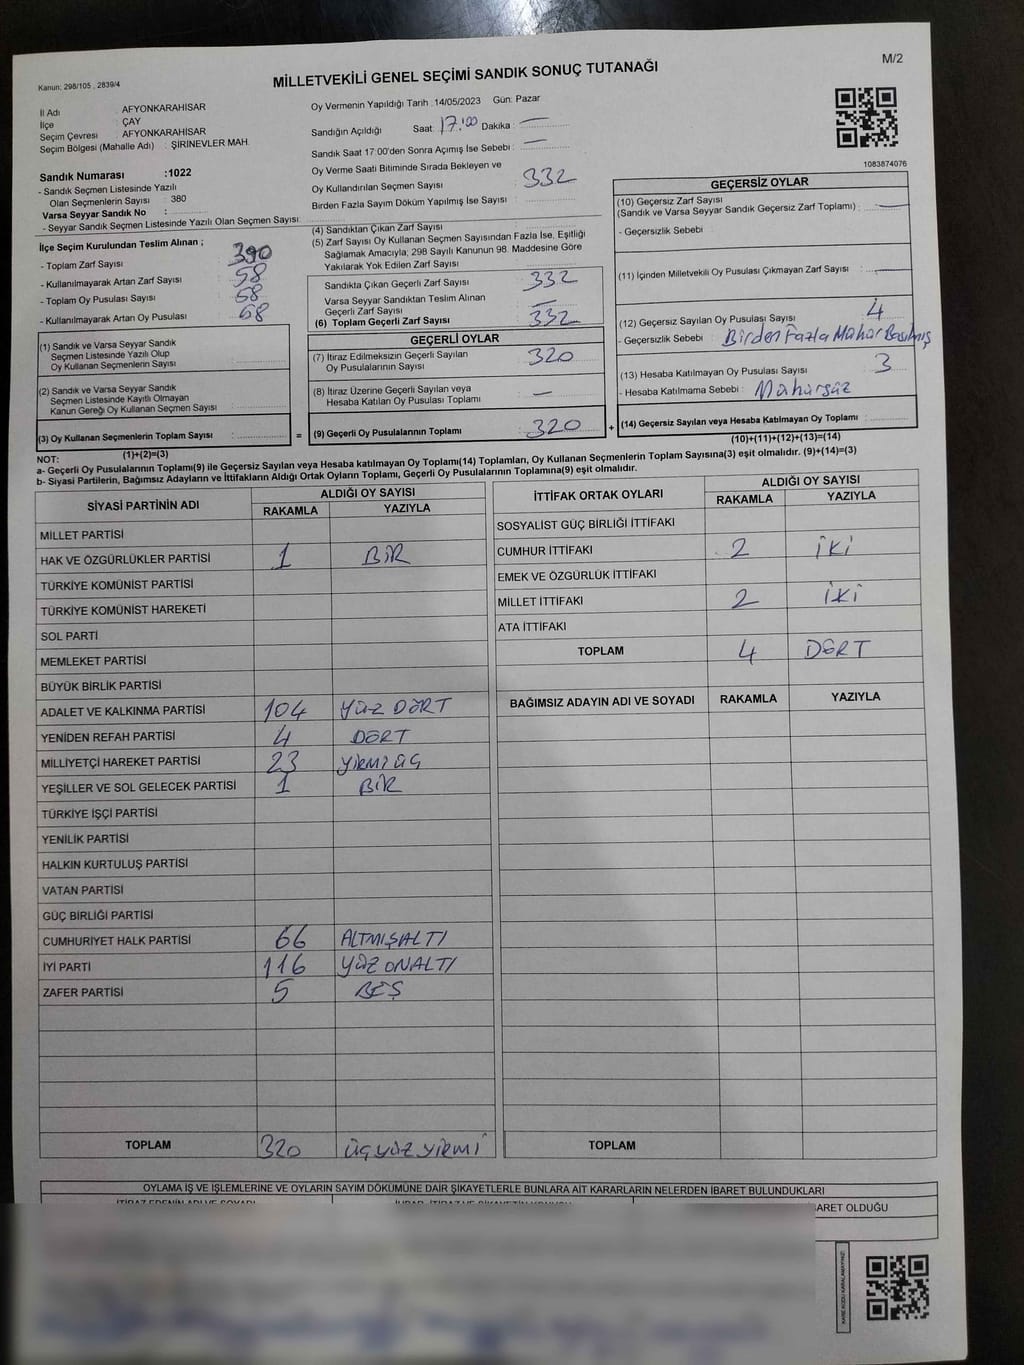 M/2
Kanun: 298/105 , 2839/4
MİLLETVEKİLİ GENEL SEÇİMİ SANDIK SONUÇ TUTANAĞI
İl Adı : AFYONKARAHİSAR
İlçe : ÇAY
Seçim Çevresi : AFYONKARAHİSAR
Seçim Bölgesi (Mahalle Adı) : ŞİRİNEVLER MAH.
Sandık Numarası :1022
- Sandık Seçmen Listesinde Yazılı
Olan Seçmenlerin Sayısı : 380
Varsa Seyyar Sandık No :
- Seyyar Sandık Seçmen Listesinde Yazılı Olan Seçmen Sayısı:
Oy Vermenin Yapıldığı Tarih :14/05/2023 Gün: Pazar
Sandığın Açıldığı Saat: 17:00 Dakika : —
Sandık Saat 17:00'den Sonra Açmış İse Sebebi : —
Oy Verme Saati Bitiminde Sırada Bekleyen ve
Oy Kullandırılan Seçmen Sayısı : 332
Birden Fazla Sayım Döküm Yapılmış İse Sayısı :
1083874076
İlçe Seçim Kurulundan Teslim Alınan ;
- Toplam Zarf Sayısı : 390
- Kullanılmayarak Artan Zarf Sayısı : 58
- Toplam Oy Pusulası Sayısı : 58
- Kullanılmayarak Artan Oy Pusulası : 58
(1) Sandık ve Varsa Seyyar Sandık
Seçmen Listesinde Yazılı Olup
Oy Kullanan Seçmenlerin Sayısı :
(2) Sandık ve Varsa Seyyar Sandık
Seçmen Listesinde Kayıtlı Olmayan
Kanun Gereği Oy Kullanan Seçmen Sayısı :
(3) Oy Kullanan Seçmenlerin Toplam Sayısı :
(1)+(2)=(3)
(4) Sandıktan Çıkan Zarf Sayısı :
(5) Zarf Sayısı Oy Kullanan Seçmen Sayısından Fazla İse, Eşitliği
Sağlamak Amacıyla, 298 Sayılı Kanunun 98. Maddesine Göre
Yakılarak Yok Edilen Zarf Sayısı :
Sandıkta Çıkan Geçerli Zarf Sayısı : 332
Varsa Seyyar Sandıktan Teslim Alınan
Geçerli Zarf Sayısı : —
(6) Toplam Geçerli Zarf Sayısı : 332
GEÇERLİ OYLAR
(7) İtiraz Edilmeksizin Geçerli Sayılan
Oy Pusulalarının Sayısı : 320
(8) İtiraz Üzerine Geçerli Sayılan veya
Hesaba Katılan Oy Pusulası Toplamı : —
= (9) Geçerli Oy Pusulalarının Toplamı : 320 +
GEÇERSİZ OYLAR
(10) Geçersiz Zarf Sayısı
(Sandık ve Varsa Seyyar Sandık Geçersiz Zarf Toplamı) : —
- Geçersizlik Sebebi
(11) İçinden Milletvekili Oy Pusulası Çıkmayan Zarf Sayısı : —
(12) Geçersiz Sayılan Oy Pusulası Sayısı : 4
- Geçersizlik Sebebi : Birden Fazla Mühür Basılmış
(13) Hesaba Katılmayan Oy Pusulası Sayısı : 3
- Hesaba Katılmama Sebebi : Mühürsüz
(14) Geçersiz Sayılan veya Hesaba Katılmayan Oy Toplamı :
(10)+(11)+(12)+(13)=(14)
NOT:
a- Geçerli Oy Pusulalarının Toplamı(9) ile Geçersiz Sayılan veya Hesaba katılmayan Oy Toplamı(14) Toplamları, Oy Kullanan Seçmenlerin Toplam Sayısına(3) eşit olmalıdır. (9)+(14)=(3)
b- Siyasi Partilerin, Bağımsız Adayların ve İttifakların Aldığı Oyların Toplamı, Geçerli Oy Pusulalarının Toplamına(9) eşit olmalıdır.
SİYASİ PARTİNİN ADI ALDIĞI OY SAYISI
RAKAMLA YAZIYLA
MİLLET PARTİSİ
HAK VE ÖZGÜRLÜKLER PARTİSİ 1 BİR
TÜRKİYE KOMÜNİST PARTİSİ
TÜRKİYE KOMÜNİST HAREKETİ
SOL PARTİ
MEMLEKET PARTİSİ
BÜYÜK BİRLİK PARTİSİ
ADALET VE KALKINMA PARTİSİ 104 YÜZ DÖRT
YENİDEN REFAH PARTİSİ 4 DÖRT
MİLLİYETÇİ HAREKET PARTİSİ 23 YİRMİ ÜÇ
YEŞİLLER VE SOL GELECEK PARTİSİ 1 BİR
TÜRKİYE İŞÇİ PARTİSİ
YENİLİK PARTİSİ
HALKIN KURTULUŞ PARTİSİ
VATAN PARTİSİ
GÜÇ BİRLİĞİ PARTİSİ
CUMHURİYET HALK PARTİSİ 66 ALTMIŞALTI
İYİ PARTİ 116 YÜZ ONALTI
ZAFER PARTİSİ 5 BEŞ
TOPLAM 320 ÜÇ YÜZ YİRMİ
İTTİFAK ORTAK OYLARI ALDIĞI OY SAYISI
RAKAMLA YAZIYLA
SOSYALİST GÜÇ BİRLİĞİ İTTİFAKI
CUMHUR İTTİFAKI 2 İKİ
EMEK VE ÖZGÜRLÜK İTTİFAKI
MİLLET İTTİFAKI 2 İKİ
ATA İTTİFAKI
TOPLAM 4 DÖRT
BAĞIMSIZ ADAYIN ADI VE SOYADI RAKAMLA YAZIYLA
TOPLAM
OYLAMA İŞ VE İŞLEMLERİNE VE OYLARIN SAYIM DÖKÜMÜNE DAİR ŞİKAYETLERLE BUNLARA AİT KARARLARIN NELERDEN İBARET BULUNDUKLARI
İTİRAZ EDENİN ADI VE SOYADI
BARET OLDUĞU